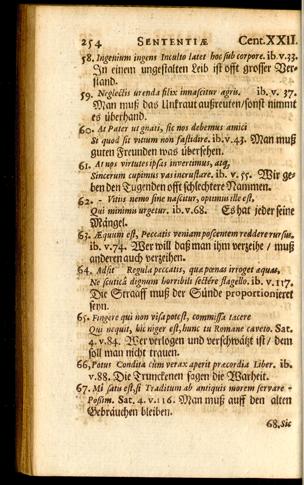 254 SENTENTIÆ Cent. XXII.
58. Ingenium ingens Inculto latet hoc sub corpore. ib. v. 33.
In einem ungestalten Leib ist offt grosser Ver-
stand.
59. Neglectis urenda filix innascitur agris. ib. v. 37.
Man muß das Unkraut außreuten/sonst nimmt
es überhand.
60. At Pater ut gnati, sic nos debemus amici
Si quod sit vitium non fastidire. ib. v. 43. Man muß
guten Freunden was übersehen.
61. At nos virtutes ipsas invertimus, atq;
Sincerum cupimus vas incrustare. ib. v. 55. Wir ge-
ben den Tugenden offt schlechtere Nammen.
62. - Vitiis nemo sine nascitur, optimus ille est,
Qui minimis urgetur. ib. v. 68. Es hat jeder seine
Mängel.
63. Æquum est, Peccatis veniam poscentem reddere rursus.
ib. v. 74. Wer will daß man ihm verzeihe / muß
anderen auch verzeihen.
64. Adsit Regula peccatis, quæ pœnas irroget æquas,
Ne scuticâ dignum horribili sectêre flagello. ib. v. 117.
Die Straaff muß der Sünde proportionieret
seyn.
65. Fingere qui non visa potest, commissa tacere
Qui nequit, hic niger est, hunc tu Romane caveto. Sat.
4. v. 84. Wer verlogen und verschwätzt ist / dem
soll man nicht trauen.
66. Potus Condita cùm verax aperit præcordia Liber. ib.
v. 88. Die Trunckenen sagen die Warheit.
67. Mî satu est, si Traditum ab antiquis morem servare -
Possim. Sat. 4. v. 116. Man muß auff den alten
Gebräuchen bleiben.
68. Sic